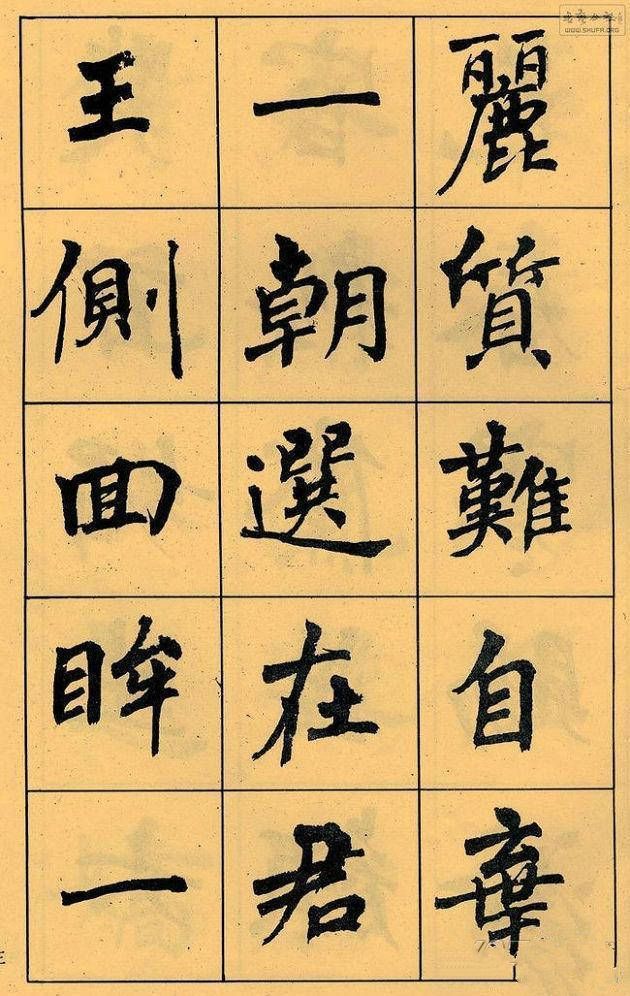 麗質難自棄
一朝選在君
王側回眸一
WWW.SHUFA.ORG